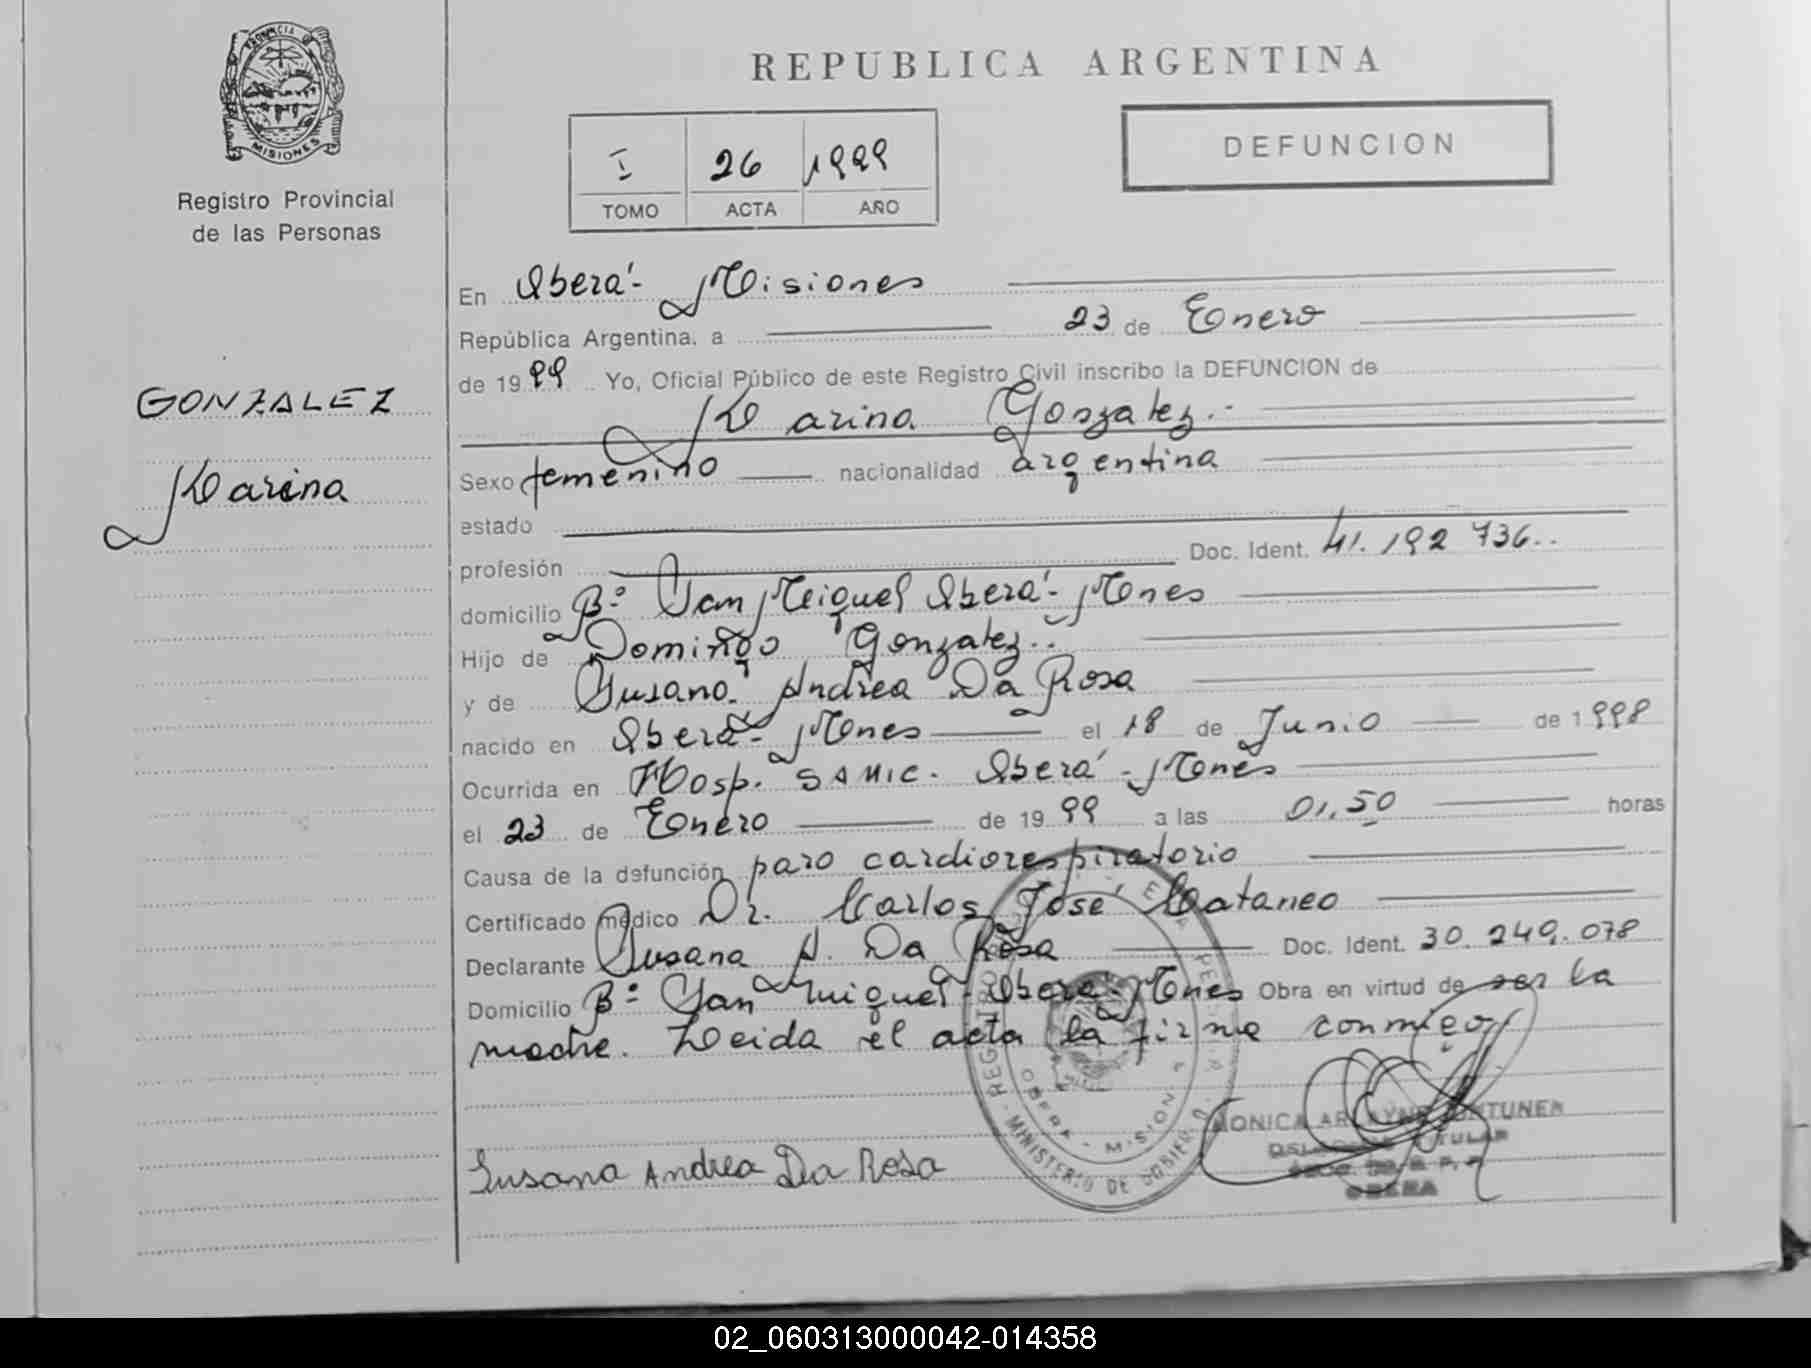 PROVINCIA D
MISIONES
Registro Provincial
de las Personas
REPUBLICA ARGENTINA
I 26 1999
TOMO ACTA AÑO
DEFUNCION
GONZALEZ
Karina
En Oberá - Misiones
República Argentina, a 23 de Enero
de 1999 Yo, Oficial Público de este Registro Civil inscribo la DEFUNCION de
Karina Gonzalez.-
Sexo femenino nacionalidad argentina
estado
profesión Doc. Ident. 41.192 736..
domicilio Bº San Miguel Oberá - Mnes
Hijo de Domingo Gonzalez..
y de Susana Andrea Da Rosa
nacido en Oberá - Mnes el 18 de Junio de 1998
Ocurrida en Hosp. SAMIC. Oberá - Mnes
el 23 de Enero de 1999 a las 01,50 horas
Causa de la defunción paro cardiorespiratorio
Certificado médico Dr. Carlos José Cataneo
Declarante Susana A. Da Rosa Doc. Ident. 30.240.078
Domicilio Bº San Miguel - Oberá - Mnes Obra en virtud de ser la
madre. Leida el acta la firma conmigo
Susana Andrea Da Rosa
MINISTERIO DE GOBIER
OBERA - MISION
MONICA
TITULAR
OBERA
02_060313000042-014358